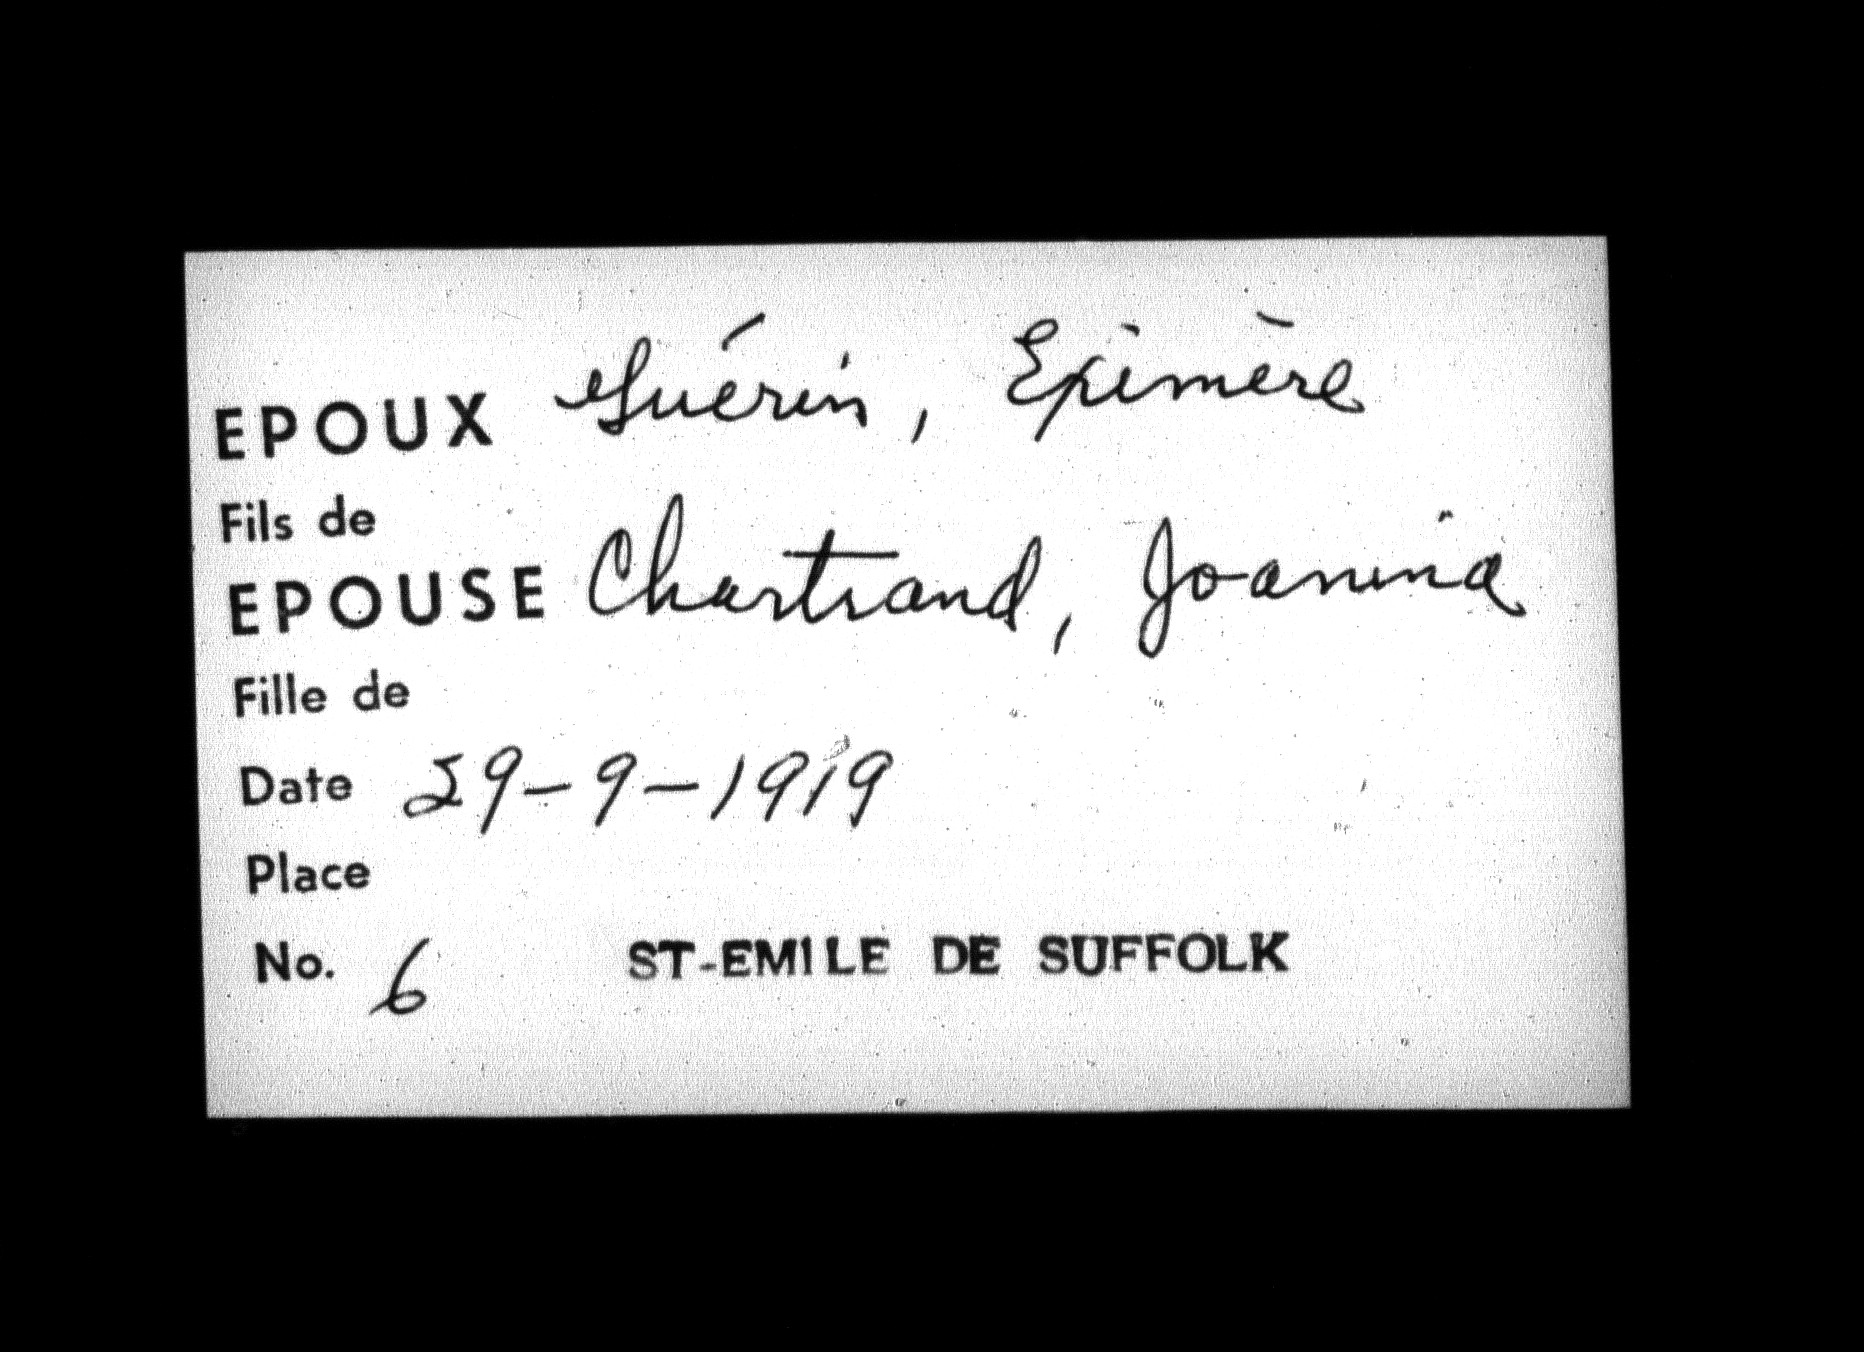 EPOUX Guérin, Epimère
Fils de
EPOUSE Chartrand, Joanina
Fille de
Date 29-9-1919
Place
No. 6 ST-EMILE DE SUFFOLK